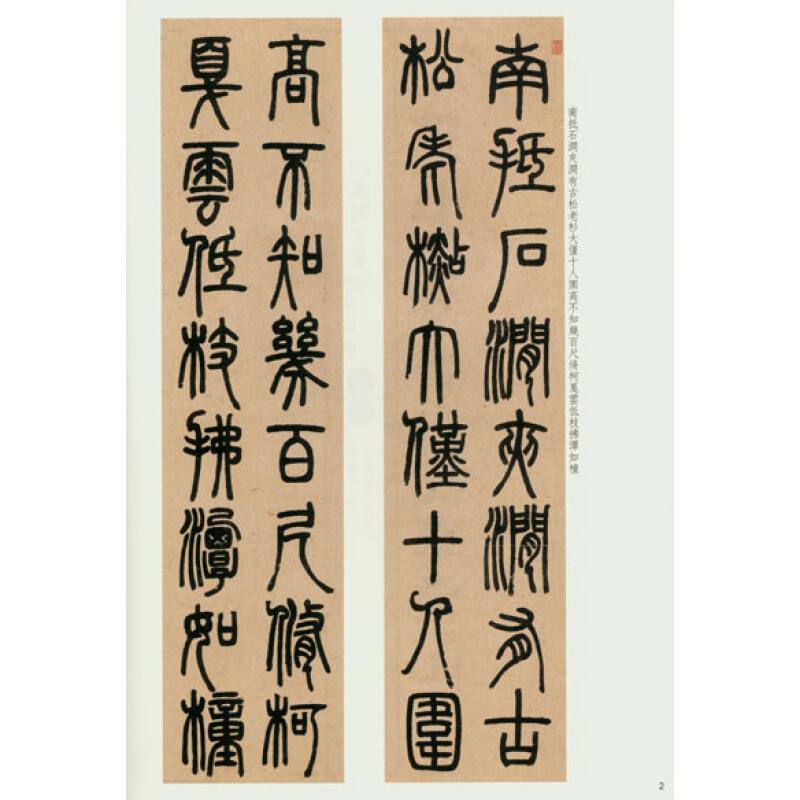 南抵石澗夾澗有古松老杉大僅十人圍高不知幾百尺脩柯戛雲低枝拂潭如橦
南抵石澗夾澗有古
松老杉大僅十人圍
高不知幾百尺脩柯
戛雲低枝拂潭如橦
2